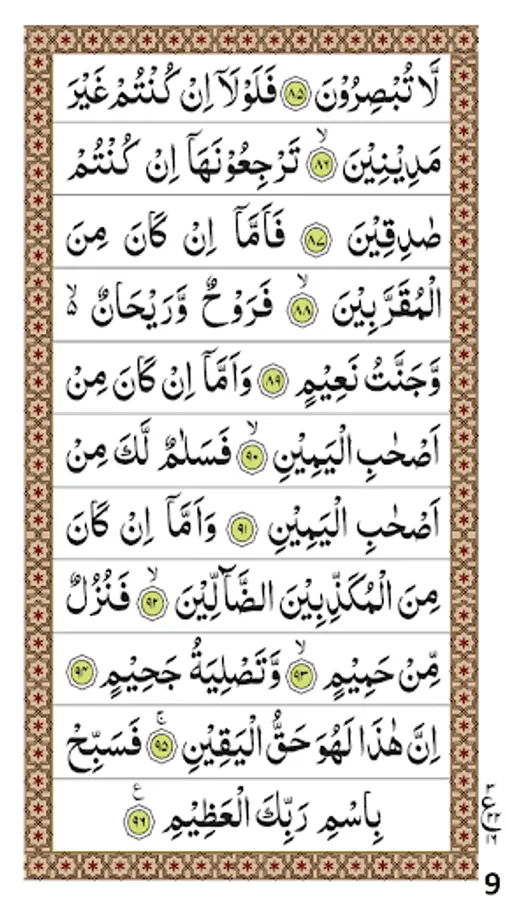 لَّا تُبْصِرُوْنَ ﴿۸۵﴾ فَلَوْلَاۤ اِنْ كُنْتُمْ غَيْرَ
مَدِيْنِيْنَ ۙ﴿۸۶﴾ تَرْجِعُوْنَهَاۤ اِنْ كُنْتُمْ
صٰدِقِيْنَ ﴿۸۷﴾ فَاَمَّاۤ اِنْ كَانَ مِنَ
الْمُقَرَّبِيْنَ ۙ﴿۸۸﴾ فَرَوْحٌ وَّرَيْحَانٌ ۙ۬
وَّجَنَّتُ نَعِيْمٍ ﴿۸۹﴾ وَاَمَّاۤ اِنْ كَانَ مِنْ
اَصْحٰبِ الْيَمِيْنِ ۙ﴿۹۰﴾ فَسَلٰمٌ لَّكَ مِنْ
اَصْحٰبِ الْيَمِيْنِ ﴿۹۱﴾ وَاَمَّاۤ اِنْ كَانَ
مِنَ الْمُكَذِّبِيْنَ الضَّآلِّيْنَ ۙ﴿۹۲﴾ فَنُزُلٌ
مِّنْ حَمِيْمٍ ۙ﴿۹۳﴾ وَّتَصْلِيَةُ جَحِيْمٍ ﴿۹۴﴾
اِنَّ هٰذَا لَهُوَ حَقُّ الْيَقِيْنِ ۚ﴿۹۵﴾ فَسَبِّحْ
بِاسْمِ رَبِّكَ الْعَظِيْمِ ﴿۹۶﴾ ع
9